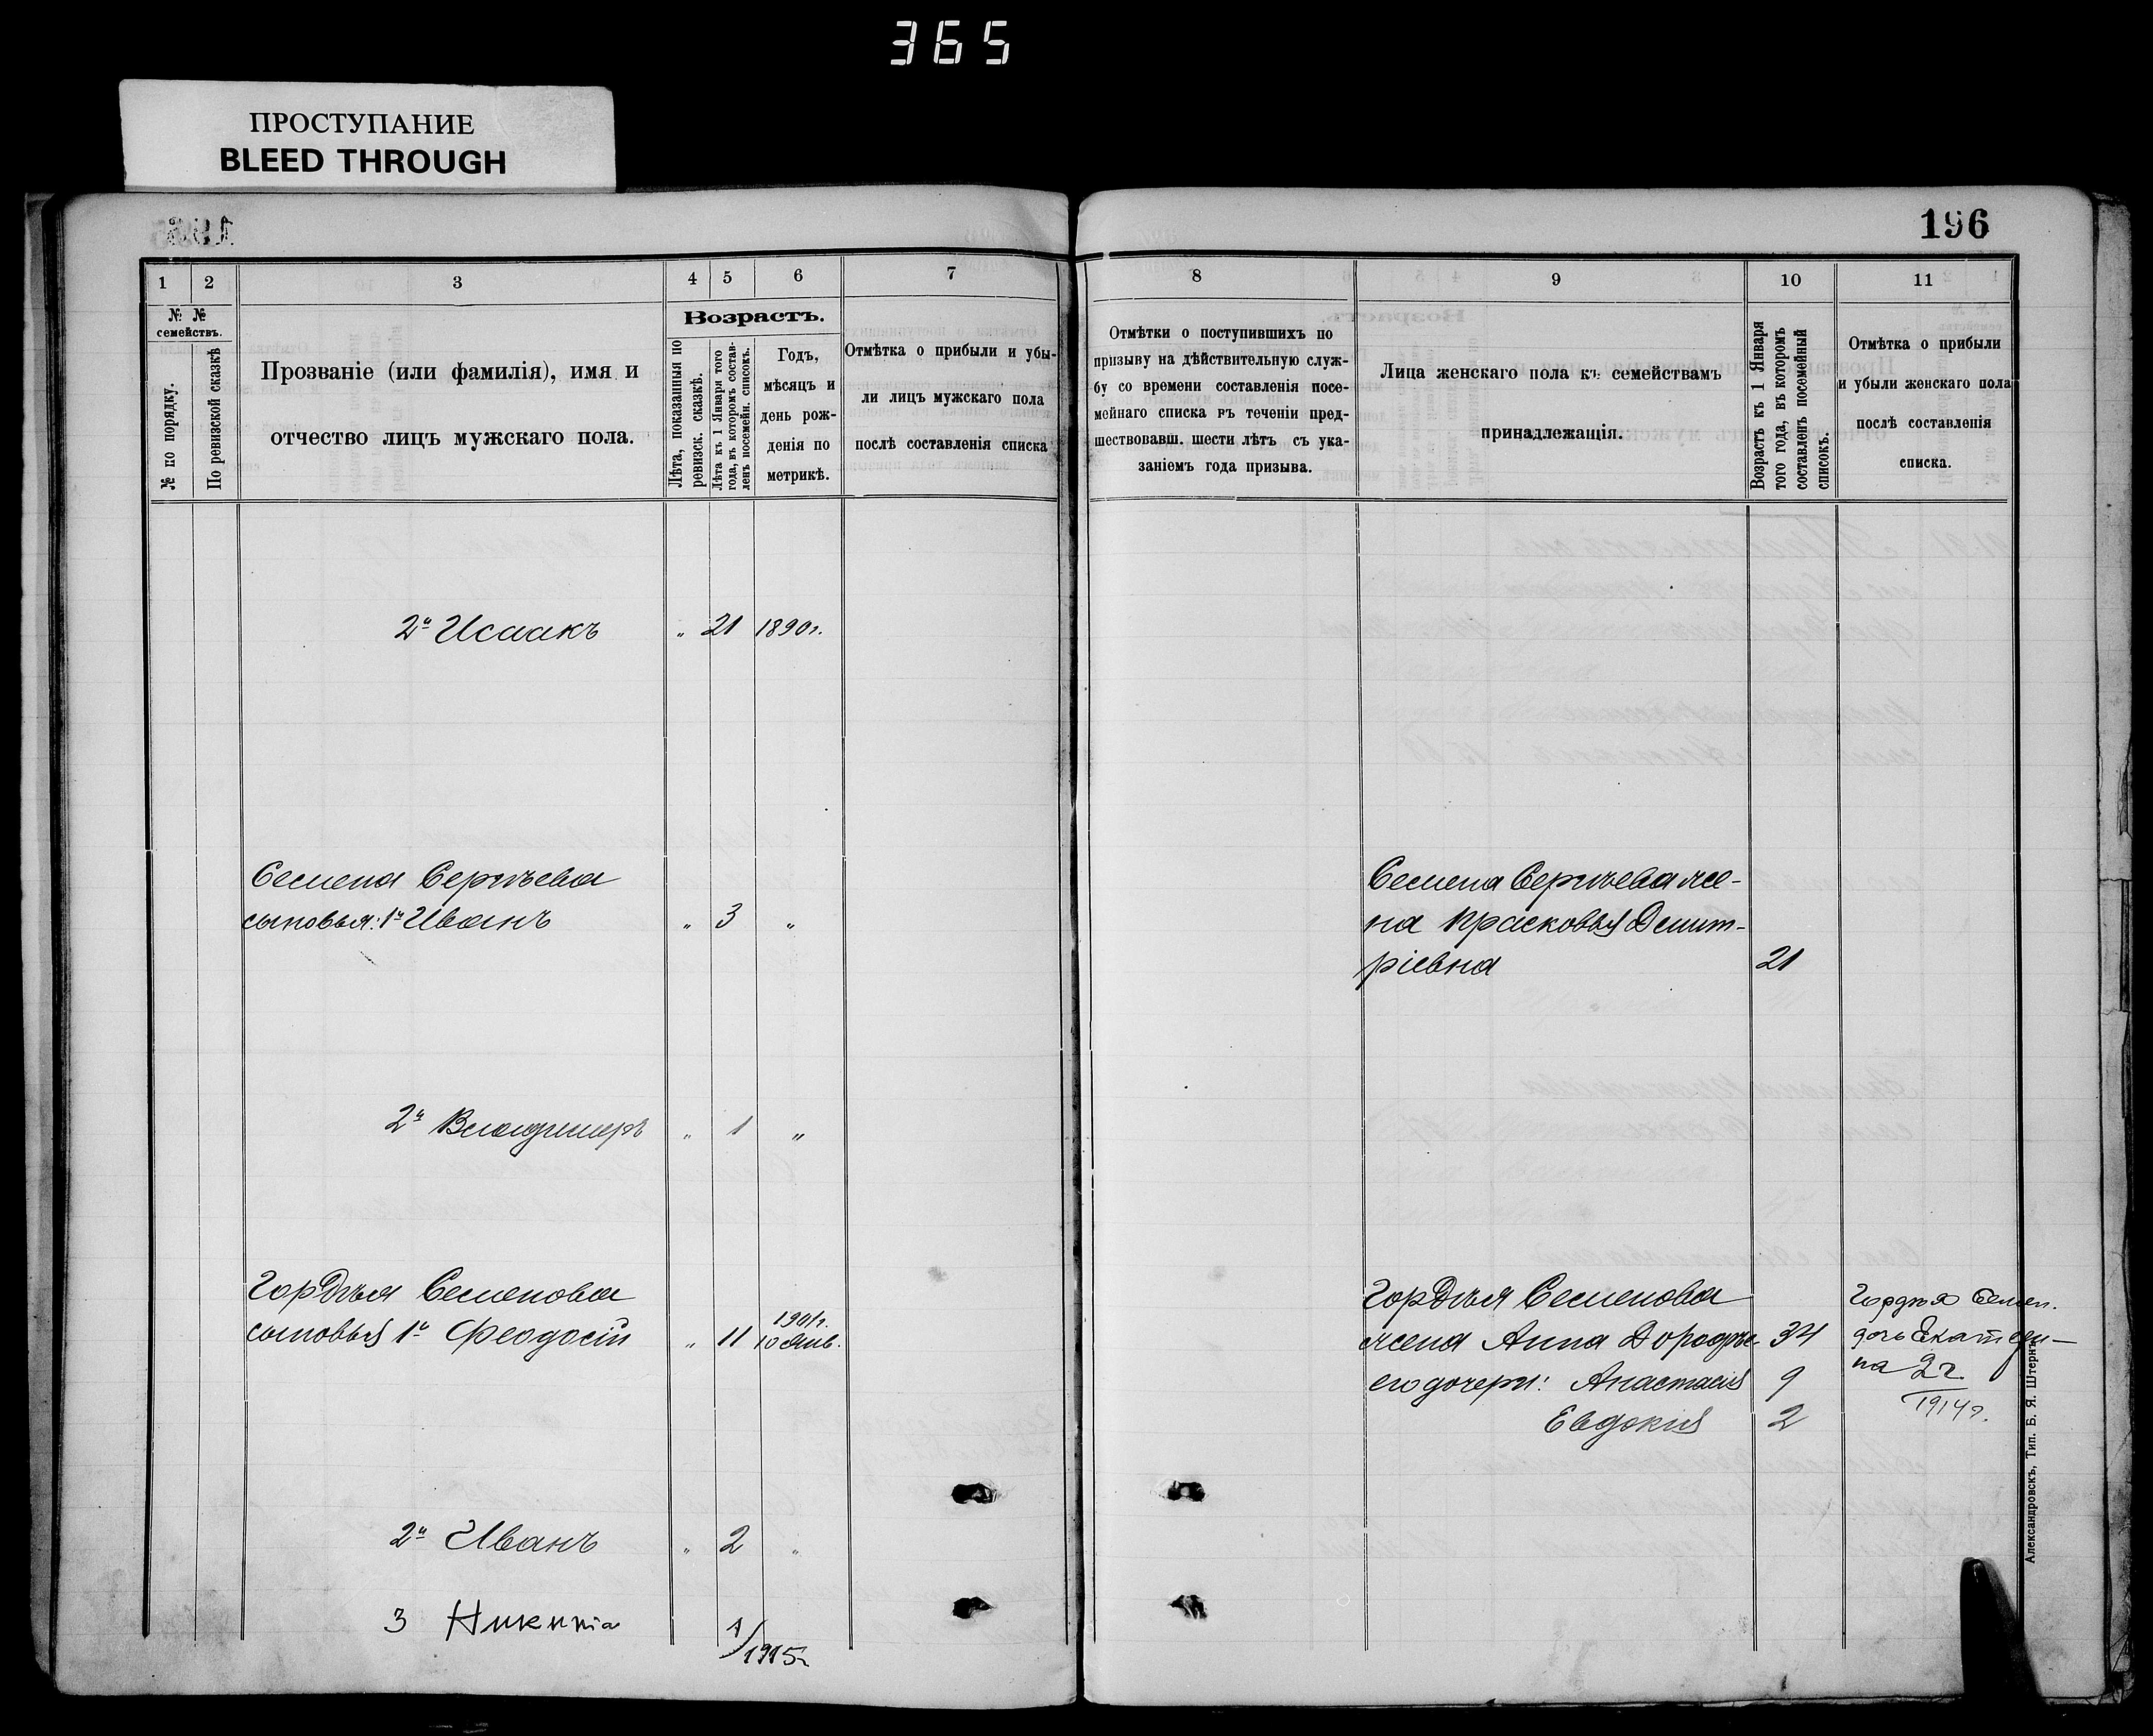 365
ПРОСТУПАНИЕ
BLEED THROUGH
196
1 2 3 4 5 6 7
№ №
семействъ.
№ по порядку.
По ревизской сказкѣ
Прозваніе (или фамилія), имя и
отчество лицъ мужскаго пола.
Возрастъ.
Лѣта, показанныя по
ревизск. сказкѣ.
Лѣта къ 1 Января того
года, въ которомъ состав-
ленъ посемейн. списокъ.
Годъ,
мѣсяцъ и
день рож-
денія по
метрикѣ.
Отмѣтка о прибыли и убы-
ли лицъ мужскаго пола
послѣ составленія списка
2й Исаакъ „ 21 1890г.
Семена Сергѣева
сыновья: 1й Иванъ „ 3 „
2й Владимиръ „ 1 „
Гордѣя Семенова
сыновья 1й Феодосій „ 11 1901г.
10 Янв.
2й Иванъ „ 2 „
3 Никита 1/1915г.
8 9 10 11
Отмѣтки о поступившихъ по
призыву на дѣйствительную служ-
бу со времени составленія посе-
мейнаго списка въ теченіи пред-
шествовавш. шести лѣтъ съ ука-
заніемъ года призыва.
Лица женскаго пола къ семействамъ
принадлежащія.
Возрастъ къ 1 Января
того года, въ которомъ
составленъ посемейный
списокъ.
Отмѣтка о прибыли
и убыли женскаго пола
послѣ составленія
списка.
Семена Сергѣева же-
на Прасковья Димит-
ріевна 21
Гордѣя Семенова
жена Анна Дородѣе. 34
его дочери: Анастасія 9
Евдокія 2
Гордѣя Семен.
дочь Екатери-
на 2г.
1914г.
Александровскъ, Тип. Б. Я. Штернъ